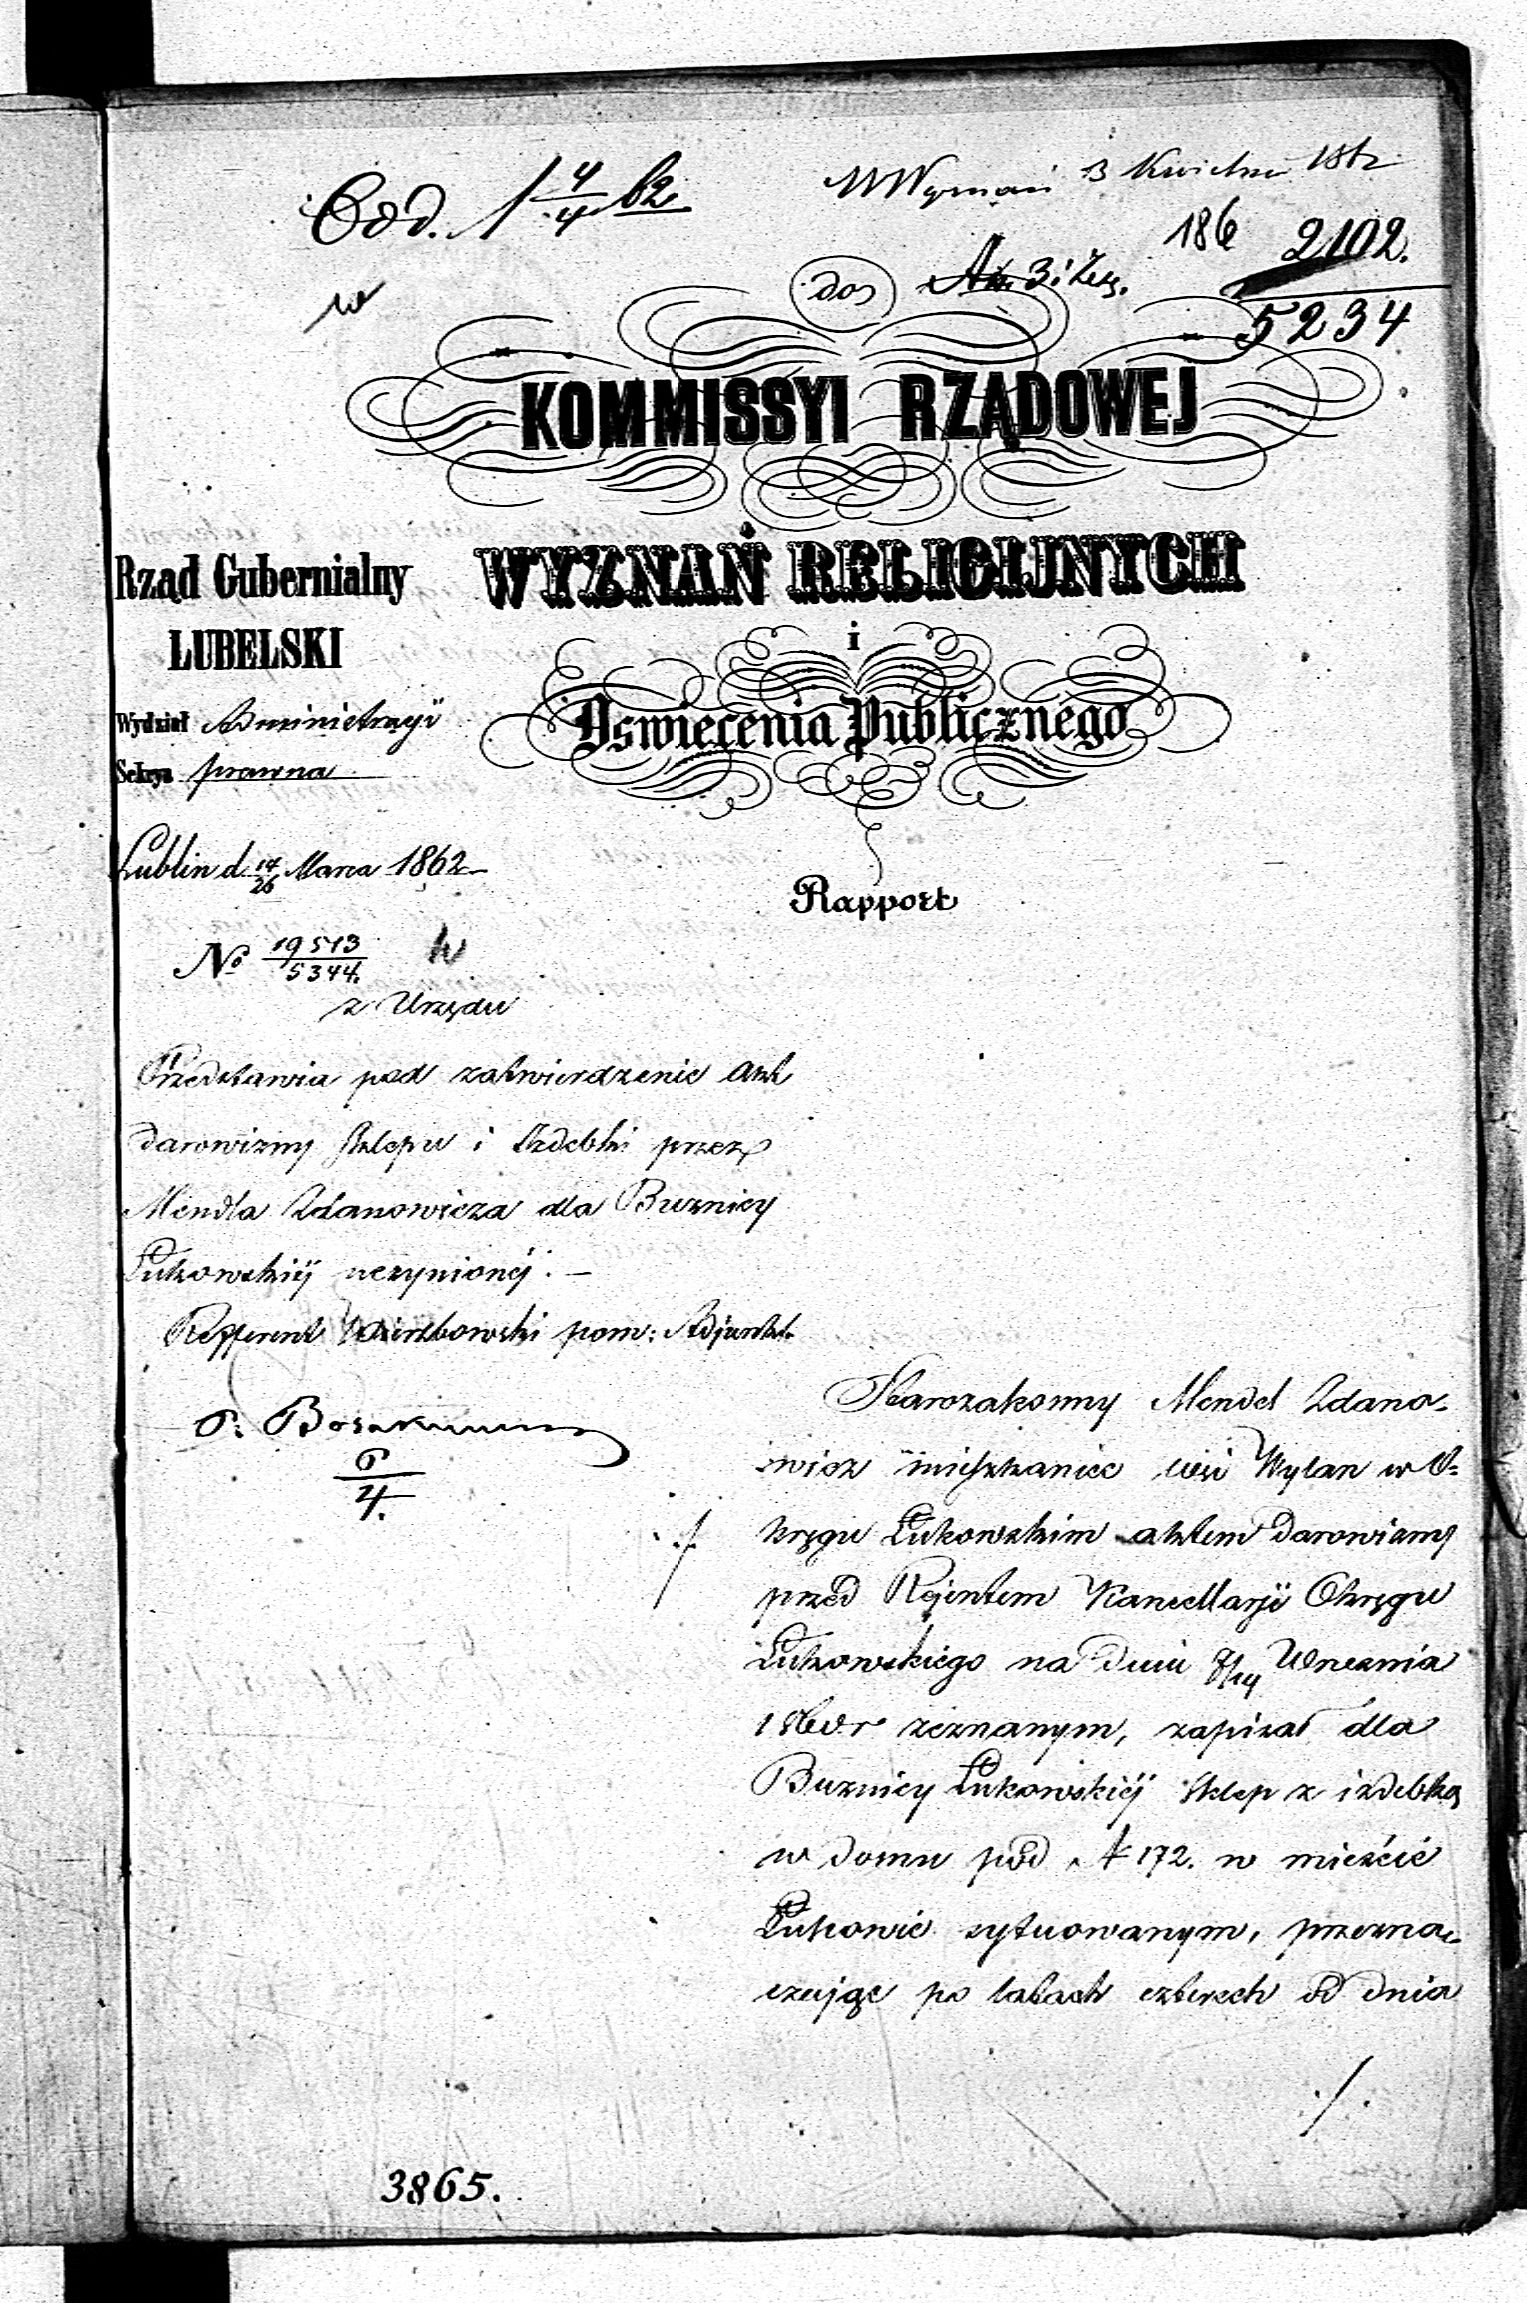 Odd. 1 4/4 62
W Wyznań 3 Kwietnia 1862
186 2102.
5234
do
KOMMISSYI RZĄDOWEJ
WYZNAŃ RELIGIJNYCH
i
Oświecenia Publicznego
Rapport
Rząd Gubernialny
LUBELSKI
Wydział Administracyi
Sekcya prawna
Lublin d 14/26 Marca 1862
No 19513/5344.
z Urzędu
Przedstawia pod zatwierdzenie akt
darowizny sklepu i Izdebki przez
Mendla Zdanowicza dla Bużnicy
Łukowskiéj uczynionéj. —
Refferent Wierzbowski pom: Adjunkt.
6/4.
Starozakonny Mendel Zdano-
wicz mieszkaniec wsi Wylan w O-
kręgu Łukowskim aktem darowizny
przed Rejentem Kancellaryi Okręgu
Łukowskiego na dniu 7/19 Września
1860 r zeznanym, zapisał dla
Bużnicy Łukowskiéj sklep z izdebką
w domu pod N 172. w mieście
Łukowie sytuowanym, przezna-
czając po latach czterech od dnia
./.
3865.